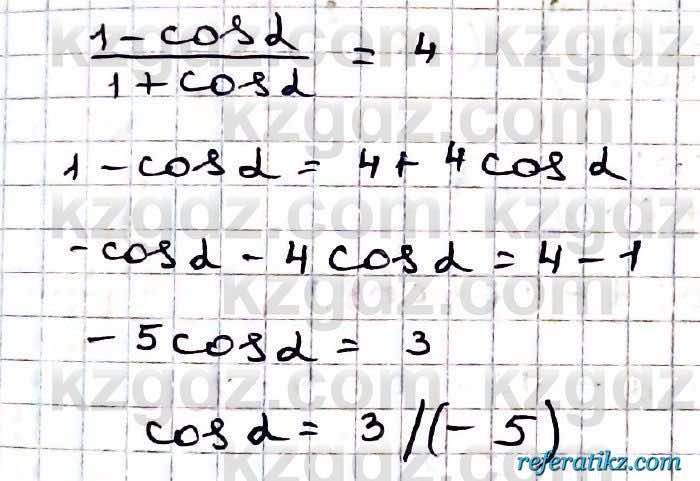 1 - cos α / 1 + cos α = 4
1 - cos α = 4 + 4 cos α
- cos α - 4 cos α = 4 - 1
- 5 cos α = 3
cos α = 3 / (- 5)
kzgdz.com kzgdz.com
referatikz.com